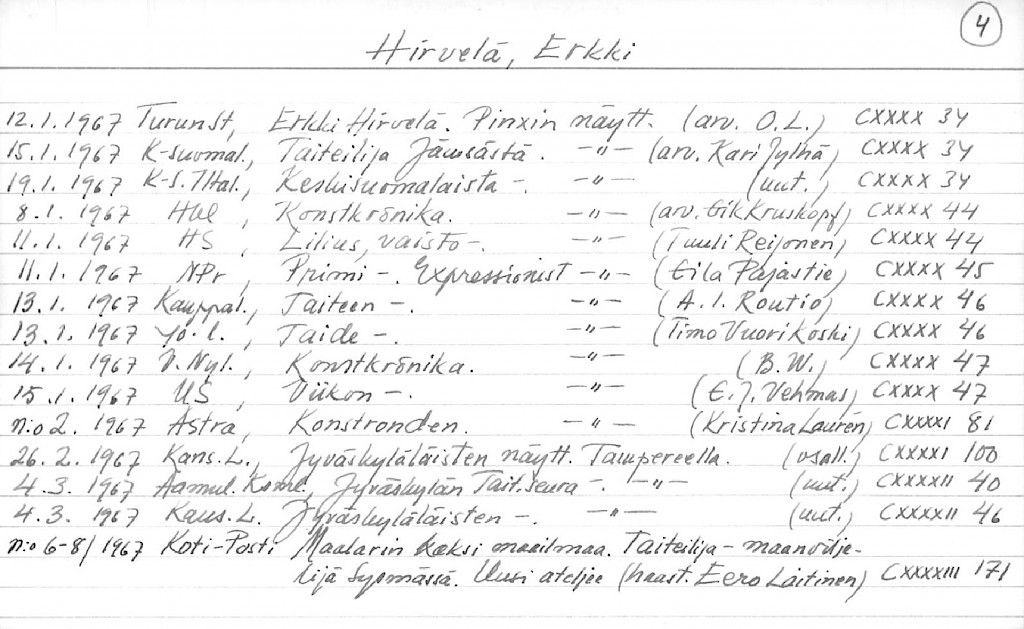 4
Hirvelä, Erkki
12.1.1967 TurunSt, Erkki Hirvelä. Pinxin näytt. (arv. O.L.) CXXXX 34
15.1.1967 K-suomal., Taiteilija Jämsästä. -"- (arv. Kari Jylhä) CXXXX 34
19.1.1967 K-S.Iltal., Keskisuomalaista -. -"- (uut.) CXXXX 34
8.1.1967 Hbl, Konstkrönika. -"- (arv. Erik Kruskopf) CXXXX 44
11.1.1967 HS, Lilius, vaisto-. -"- (Tuuli Reijonen) CXXXX 44
11.1.1967 NPr, Primi-. Expressionist -"- (Eila Pajastie) CXXXX 45
13.1.1967 Kauppal., Taiteen -. -"- (A.I. Routio) CXXXX 46
13.1.1967 Yo.l., Taide -. -"- (Timo Vuorikoski) CXXXX 46
14.1.1967 V.Nyl., Konstkrönika. -"- (B.W.) CXXXX 47
15.1.1967 US, Viikon -. -"- (E.J. Vehmas) CXXXX 47
n:o 2. 1967 Astra, Konstronden. -"- (Kristina Laurén) CXXXXI 81
26.2.1967 Kans.L., Jyväskyläläisten näytt. Tampereella. (osall.) CXXXXI 100
4.3.1967 Aamul. Jyväskylän Tait.seura -. -"- (uut.) CXXXXII 40
4.3.1967 Kans.L. Jyväskyläläisten -. -"- (uut.) CXXXXII 46
n:o 6-8/1967 Koti-Posti Maalarin kaksi maailmaa. Taiteilija - maanvilje-
lijä Sysmässä. Uusi ateljee (haast. Eero Laitinen) CXXXXIII 171